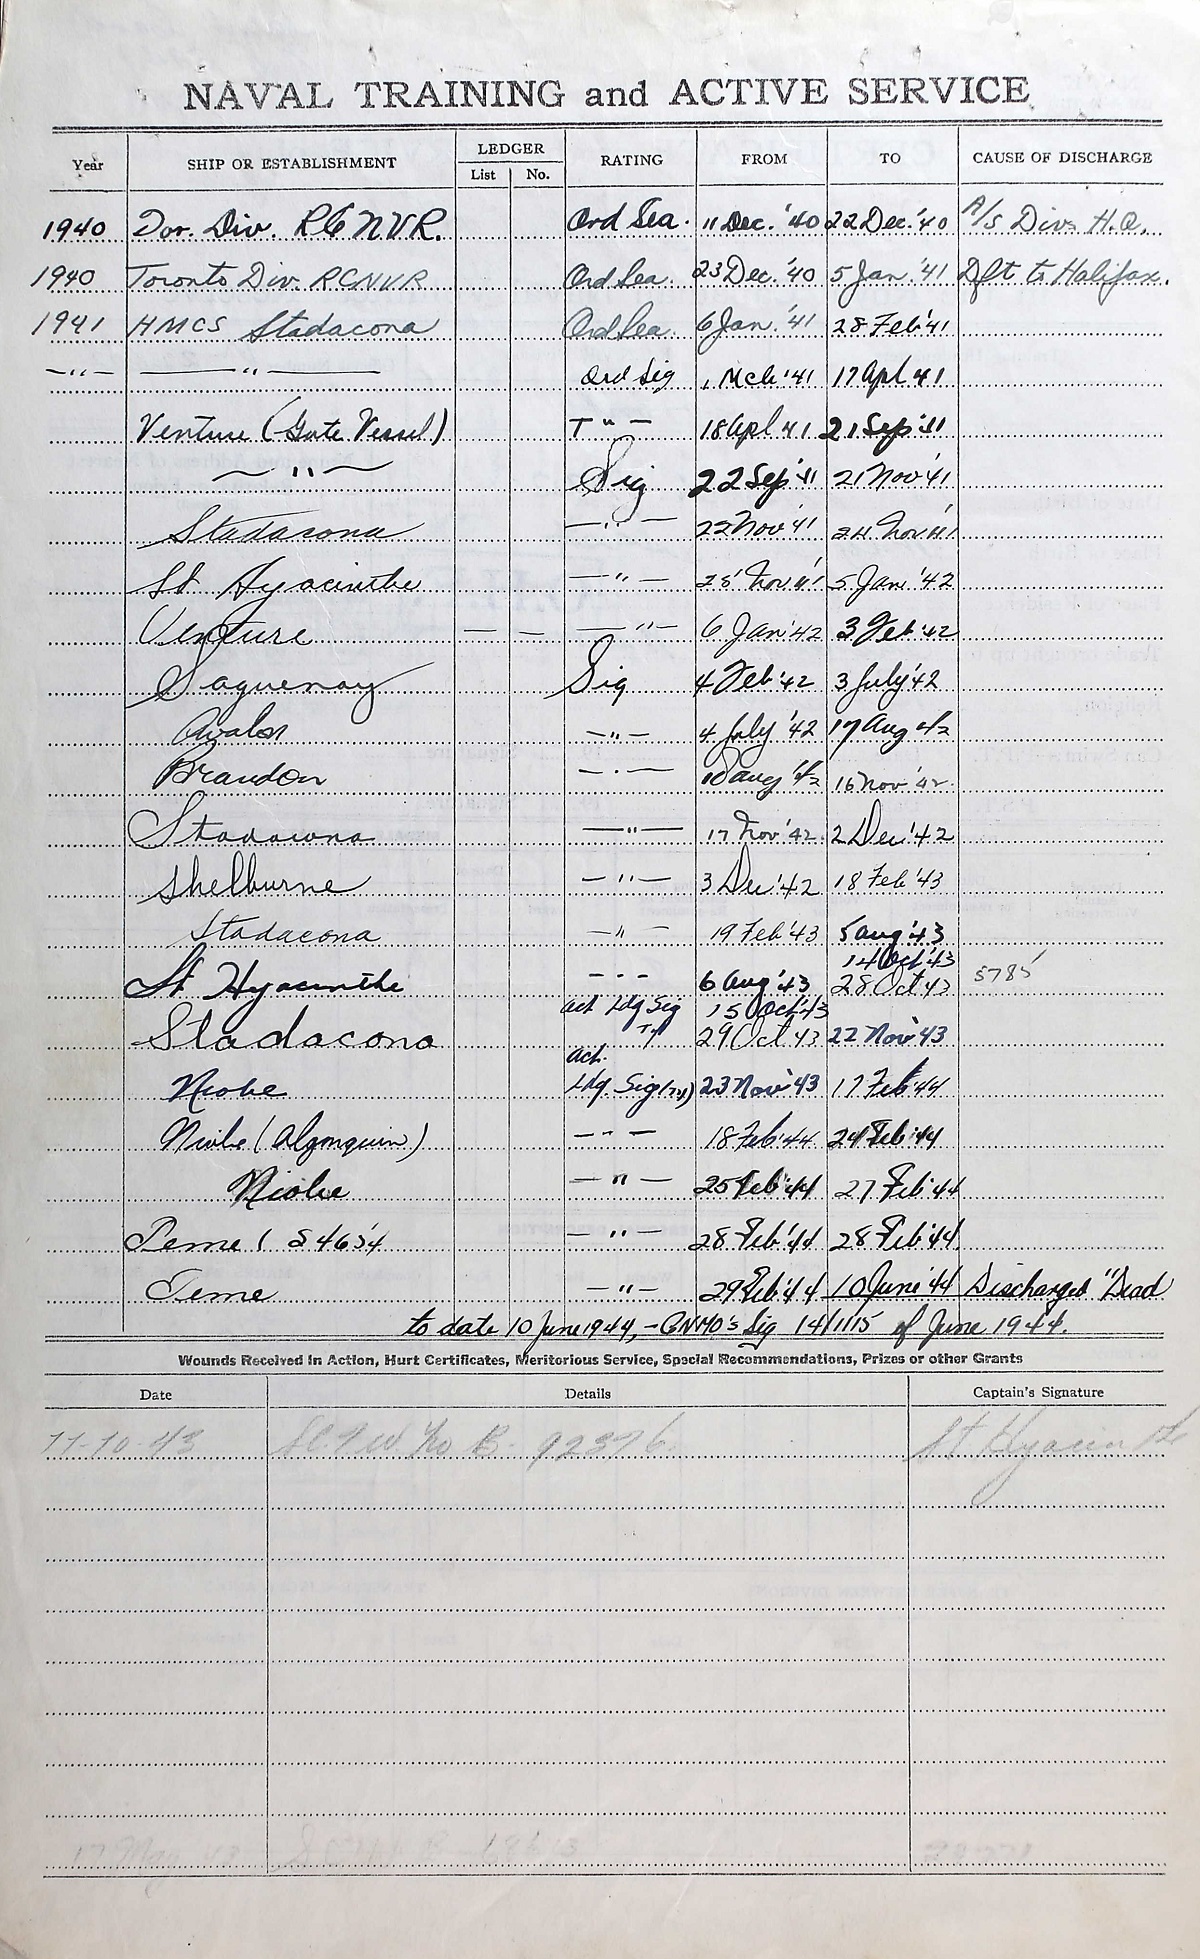 NAVAL TRAINING and ACTIVE SERVICE
Year SHIP OR ESTABLISHMENT LEDGER List No. RATING FROM TO CAUSE OF DISCHARGE
1940 Tor. Div. RCNVR. Ord Sea. 11 Dec. '40 22 Dec. '40 A/S Div. H.Q.
1940 Toronto Div. RCNVR Ord Sea. 23 Dec. '40 5 Jan. '41 Dft to Halifax.
1941 HMCS Stadacona Ord Sea. 6 Jan. '41 28 Feb '41
—"— —"— Ord Sig 1 Mch '41 17 Apl 41
Venture (Gate Vessel) T " — 18 Apl 41 21 Sep '41
— " — Sig 22 Sep '41 21 Nov '41
Stadacona —"— 22 Nov '41 24 Nov '41
St Hyacinthe —"— 25 Nov '41 5 Jan '42
Venture — — —"— 6 Jan '42 3 Feb '42
Saguenay Sig 4 Feb '42 3 July '42
Avalon —"— 4 July '42 17 Aug 42
Brandon —"— 18 Aug '42 16 Nov '42
Stadacona —"— 17 Nov '42 2 Dec '42
Shelburne —"— 3 Dec '42 18 Feb '43
Stadacona —"— 19 Feb '43 5 Aug '43
14 Oct '43
St Hyacinthe —"— 6 Aug '43 28 Oct 43 5785
Act Ldg Sig 15 Oct '43
Stadacona Ty 29 Oct 43 22 Nov '43
Act.
Niobe Ldg. Sig (Ty) 23 Nov '43 17 Feb '44
Niobe (Algonquin) —"— 18 Feb '44 24 Feb '44
Niobe —"— 25 Feb '44 27 Feb '44
Teme ( S4654 —"— 28 Feb '44 28 Feb '44.
Teme —"— 29 Feb '44 10 June '44 Discharged "Dead
to date 10 June 1944, - CNMO's Sig 141115 of June 1944.
Wounds Received in Action, Hurt Certificates, Meritorious Service, Special Recommendations, Prizes or other Grants
Date Details Captain's Signature
11-10-43 No B. 92376. St Hyacinthe
17 May